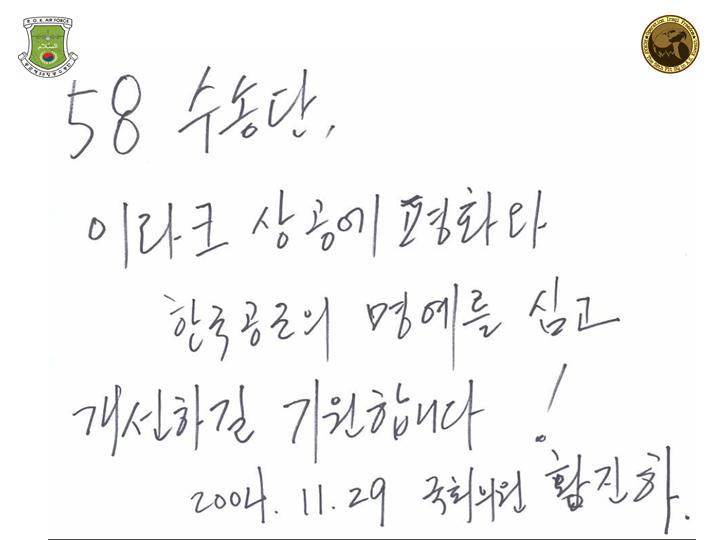 R.O.K. AIR FORCE
58 수송단,
이라크 상공에 평화와
한국공군의 명예를 심고
개선하길 기원합니다!
2004. 11. 29 국회의원 황진하.